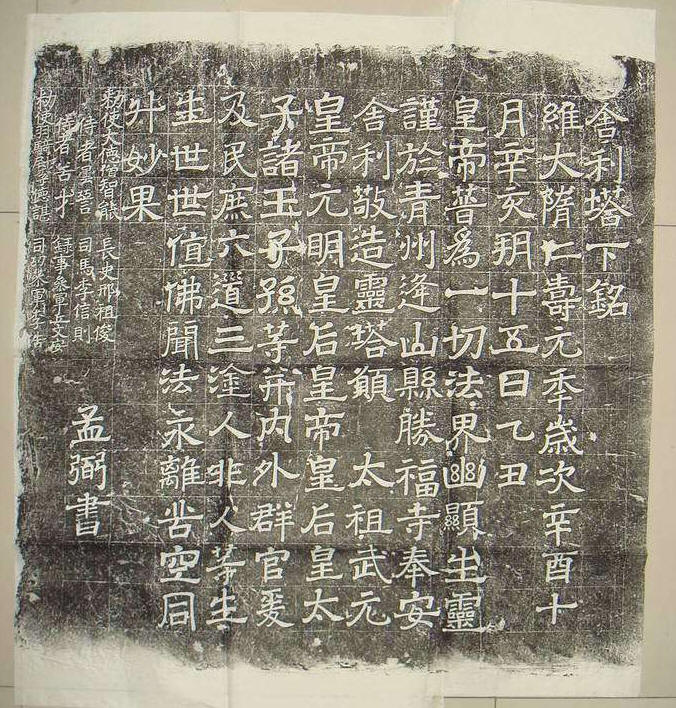 舍利塔下銘
維大隋仁壽元年歲次辛酉十
月辛亥朔十五日乙丑
皇帝普為一切法界幽顯生靈
謹於青州逢山縣勝福寺奉安
舍利敬造靈塔願　太祖武元
皇帝元明皇后皇帝皇后皇太
子諸王子孫等并內外群官爰
及民庶六道三塗人非人等生
生世世值佛聞法永離苦空同
升妙果
孟弼書
敕使大德僧智能　長史邢祖俊
侍者曇䛒　司馬李信則
侍者善才　錄事參軍丘文安
敕使羽騎尉李德諶　司功參軍李佸